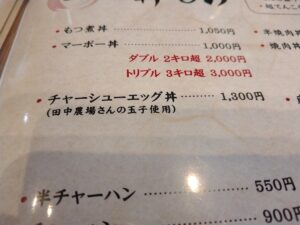 ・もつ煮丼 1,050円
・マーボー丼 1,000円
ダブル 2キロ超 2,000円
トリプル 3キロ超 3,000円
・チャーシューエッグ丼 1,300円
(田中農場さんの玉子使用)
・半チャーハン 550円
900円
・半焼肉丼
・焼肉